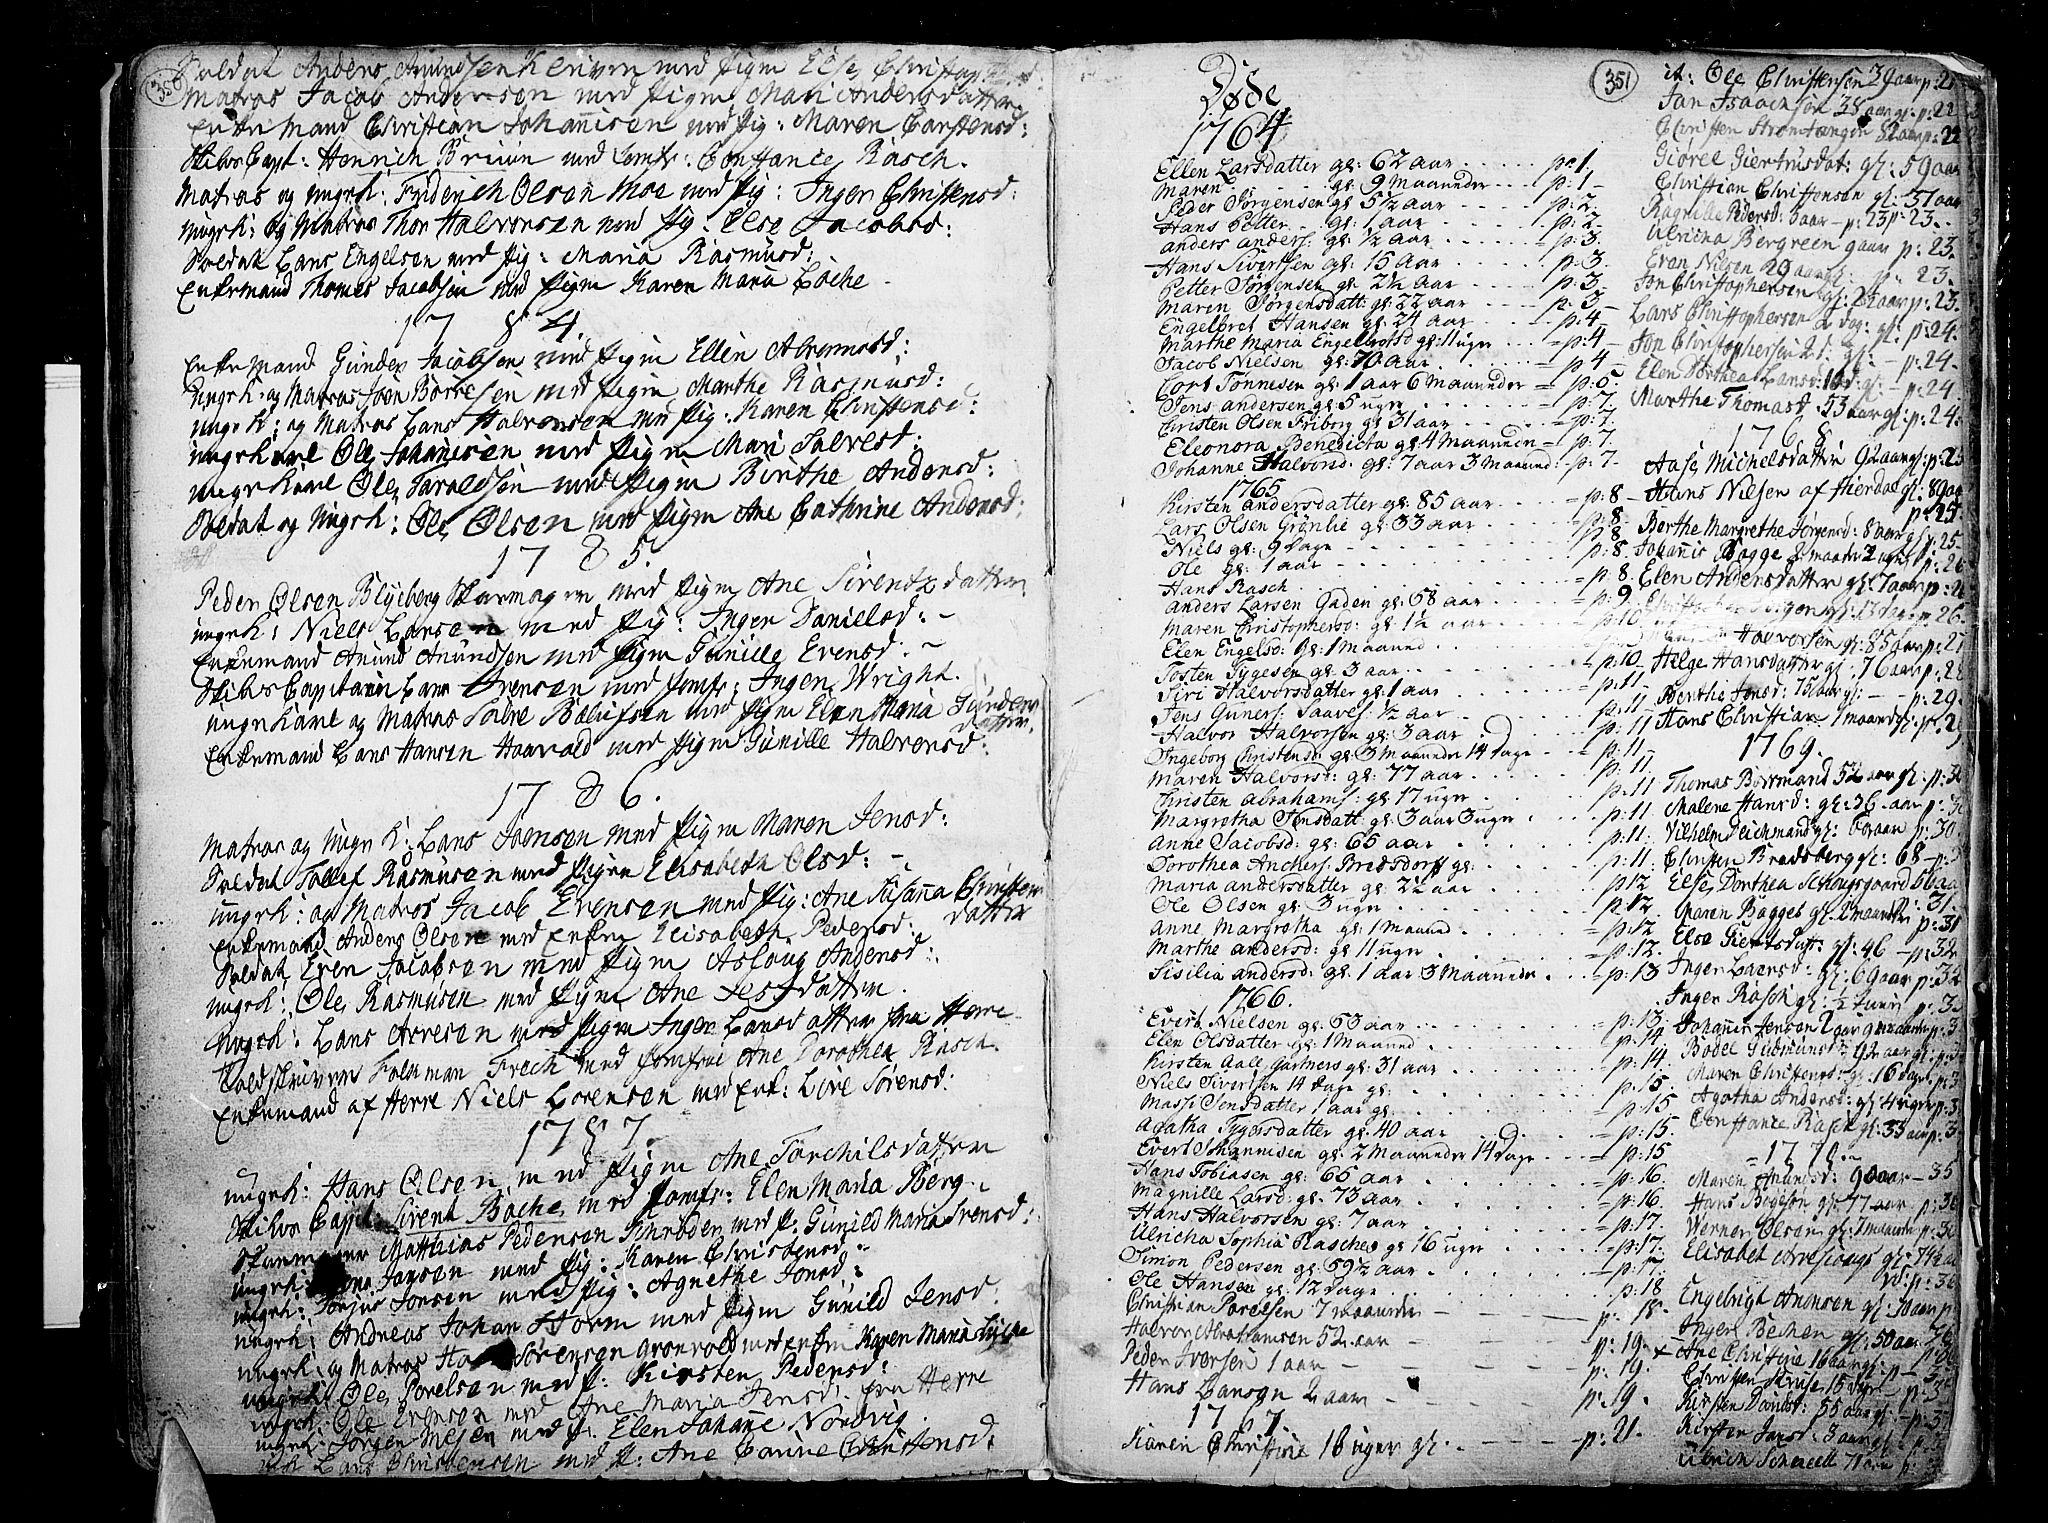 350
Soldat Anders Amundsen med Pigen Else
Matros Jacob Andersen med Pigen Mari Andersdatter
Enke Mand Christian Johannisen med Pig: Maren Carstensd:
Skibs Capt: Henrich Bruun med Jomfr: Constance Rasch.
Matros og ungk: Friderich Olsen Moe med Pig: Inger Christensd:
ungk: og Matros Thor Halvorsen med Pig: Else Jacobsd:
Soldat Lars Engelsen med Pig: Maria Rasmusd:
Enkemand Thomas Jacobsen med Pigen Karen Maria Bache
1784
Enke Mand Gunder Jacobsen med Pigen Ellen
Ungk: og Matros Joen Børresen med Pigen Marthe Rasmusd:
ungk: og Matros Lars Halvorsen med Pig: Karen Christensd:
ungkarl Ole Johanisen med Pigen Mari Salvesd:
ungkarl Ole Taraldsen med Pigen Birthe Andersd:
Soldat og Ungk: Ole Olsen med Pigen Ane Cathrine Andersd:
1785.
Peder Olsen Blyeberg Skomager med Pigen Ane Sørentzdatter
ungk: Niels Larsen med Pig: Inger Danielsd: -
Enkemand Amund Amundsen med Pigen Gunille Evensd: -
Skibs Capitain Lars Svensen med Jomfr: Inger Wright.
ungkarl og Matros med Pigen Elen Maria Gunders
datter.
Enkemand Lars Hansen Haavold med Pigen Gunille Halvorsd:
1786.
Matros og Ungk: Lars Joensen med Pigen Maren Jensd:
Soldat Tollef Rasmusen med Pigen Elisabeth Olsd: -
ungk: og Matros Jacob Evensen med Pig: Ane Susanna Christens
datter
Enkemand Anders Olsen med Enken Elisabeth Pedersd:
Soldat Even Jacobsen med Pigen Aslaug Andersd:
ungk: Ole Rasmusen med Pigen Ane
Ungk: Lars Arvesen med Pigen Inger Larsdatter fra Herre
Toldskriver Folkman Frech med Jomfrue Ane Dorothea Rasch.
Enkemand af Herre Niels Sørensen med Enk: Live Sørensd:
1787.
ungk: Hans Olsen med Pigen Ane Torchilsdatter
Skibs Capt: Sivert Bache med Jomfr: Elen Maria Berg.
Skomager Matthias Pedersen Schrøder med P. Gunild Maria Svensd:
ungk: Jansen med Pig: Karen Christensd:
ungk: Torjus Jonsen med Pig: Agnethe Jonsd:
ungk: Andreas Johan Storm med Pigen Gunild Jensd:
ungk: og Matros Sørensen Grønvold med Enken Karen Maria
ungk: Ole Povelsen med P: Kirsten Pedersd:
ungk: Ole Evensen med Ane Maria Jensd: fra Herre
ungk: Jørgen med P. Elen Johanne Nordvig.
ungk: Lars Christensen med P: Ane Carine Christensd:
Døde
1764
Ellen Larsdatter gl: 62 aar p: 1.
Maren gl: 9 Maaneder p: 1
Peder Jørgensen gl: 5½ aar p: 2.
Hans Petter gl: 1 aar p: 2
anders anders: gl: ½ aar p: 3.
Hans Sivertsen gl: 15 aar p: 3
Petter Jørgensen gl: 2½ aar p: 3
Maren Jørgensdatt: gl: 22 aar p: 3
Engelbret Hansen gl: 24 aar p: 4
Marthe Maria Engelbretsd gl: 11 uger p: 4
Jacob Nielsen gl: 70 aar p: 4
Cort Tønnesen gl: 1 aar 6 maaneder p: 5.
Jens andersen gl: 5 uger p: 7.
Christen Olsen Friborg gl: 31 aar p: 7
Eleonora Benedicta gl: 4 Maaneder p: 7.
Johanne Halvorsd: gl: 7 aar 3 Maaned: p: 7.
1765
Kirsten andersdatter gl: 85 aar p: 8
Lars Olsen Grønlie gl: 33 aar p: 8.
Niels gl: 9 dage p: 8
Ole gl: 1 aar p: 8.
Hans Rasch p: 8.
anders Larsen Gaden gl: 58 aar p: 9
Maren Christophersd: gl: 1½ aar p: 10
Elen Engelsd: gl: 1 maaned
Tosten Tygesen gl: 3 aar p: 10
Siri Halvorsdatter gl: 1 aar p: 11
Jens Guners: Saavel: ½ aar p: 11
Halvor Halvorsen gl: 3 aar p: 11
Ingeborg Christensd: gl: 3 Maaneder 14 dage p: 11
Maren Halvorsd: gl: 77 aar p: 11.
Christen abrahams: gl: 17 uger p: 11
Margretha Jonsdatt: gl: 3 aar 3 uger p: 11
Anne Jacobsd: gl: 65 aar p: 11.
Dorothea Anchers: Bredsdorff gl: p: 11
Maria andersdatter gl: 22 aar p 12
Ole Olsen gl: 3 uger p: 12
Anne Margretha gl: 1 Maaned p: 12
Marthe andersd: gl: 11 uger p: 12.
Sisilia andersd: gl: 1 aar 3 Maaneder p: 13
1766.
Evert Nielsen gl: 53 aar p: 13.
Elen Olsdatter gl: 1 Maaned p: 14
Kirsten Aall Gartners gl: 31 aar p: 14
Niels Sivertsen 14 dage gl: p: 15.
Massi Jensdatter 1 aar gl: p: 15
Agatha Tygesdatter gl: 40 aar p: 15.
Evert Johannisen gl: 2 Maaneder 14 dage p: 15
Hans Tobiasen gl: 65 aar p: 16
Magnille Larsd: gl: 73 aar p: 16
Hans Halvorsen gl: 7 aar p: 17.
Ulricha Sophia Rasches gl 16 uger p: 17.
Simon Pedersen gl: 59½ aar p: 17
Ole Hansen gl: 12 dage p: 18
Christian Povelsen 7 maaneder p: 18
Halvor Abrahamsen 52 aar p: 19
Peder Iversen 1 aar p: 19.
Hans Larsen 2 aar p: 19
1767
Karen Christine 16 uger gl: p: 21.
351
it: Ole Christensen 39 aar p: 21
Jan Isaachsen 38 aar gl: p: 22
Christen Strømtangen 82 aar p: 22
Giørel Giertrusdat: gl: 59 aar
Christian Christensen gl: 37 aar
Ragnille Pedersd: 5 aar p: 23 p: 23.
Ulricha Bergreen 9 aar p: 23.
Even Nilsen 29 aar gl: p: 23.
Jon Christophersen gl: 25 aar p: 23.
Lars Christophersen 2 dag: gl: p: 24.
Jon Christophersen 2 d: gl: p: 24.
Elen Dorthea Larsd: 16 d: gl: p: 24
Marthe Thomasd. 53 aar gl: p: 24.
1768
Aase Michelsdatter 92 aar gl: p: 25
Hans Nilsen af Hierdal gl: 89 aar
p: 25.
Berthe Margrethe Jørgensd: 8 aar gl: p: 25.
Johannis Bagge 2 maander 2 uger p: 26
Elen Andersdatter gl: 7 aar p: 26
gl: 13 dage p: 26.
Halvorsen gl: 85 aar p: 27
Helge Hansdatter gl: 76 aar p: 28
Berthe Jensd: 75 aar gl: p: 29.
Hans Christian 1 maaned gl: p: 29
1769.
Thomas Borrmand 52 aar gl: p: 30
Malene Hansd: gl: 36 aar p: 30
Vilhelm Deichmand gl: 60 aar p: 30
Christen Bredsberg gl: 68 p:
Else Dorthea Schougaard 56 aar
p: 31.
Maren Bagges gl: 2 maander p: 31
Else Giertsdatt: gl: 46 p: 32
Inger Larsd: gl: 69 aar p: 32
Inger Rasch gl: p: 33
Johannis Jensen 2 aar 9 maander p: 3
Bodel Gudmunsd: 92 aar gl: p: 3
Maren Christensd: gl: 16 dage p: 3
Agatha Andersd: gl: 4 uger p: 3
Constance Rasch gl: 33 aar p: 3
1770.
Maren Amunsd: 90 aar 35
Hans Boesøn gl: 77 aar p: 36
Werner Olsen gl: 7 maander p: 36
Elisabet gl: 74½ aar
p: 36
Engebrigt Aronsen gl: 70 aar p
Inger Bechen gl: 50 aar 36
x Ane Christine 16 aar gl: p: 36
Christen 15 dage p: 3
Kirsten Davidsd: 55 aar gl: p: 37
Kirsten Jansd: 3 aar gl: p: 3
Ulrich Schneell 71 aar p: 3